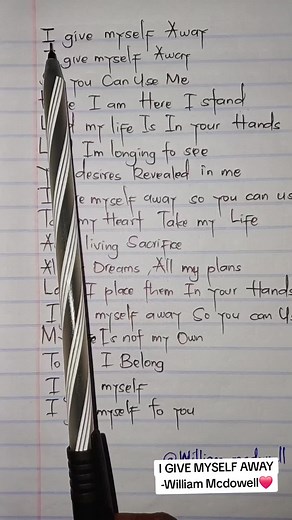 I give myself Away
I give myself Away
you Can Use Me
I am Here I stand
my life Is In your Hands
I'm longing to see
desires Revealed in me
I myself away so you can us
To my Heart Take my Life
A living Sacrifice
All Dreams, All my plans
Lo I place them In your Hands
I myself away So you can U
M Is not my Own
To I Belong
I myself
I myself to you
@William
I GIVE MYSELF AWAY
-William Mcdowell❤️